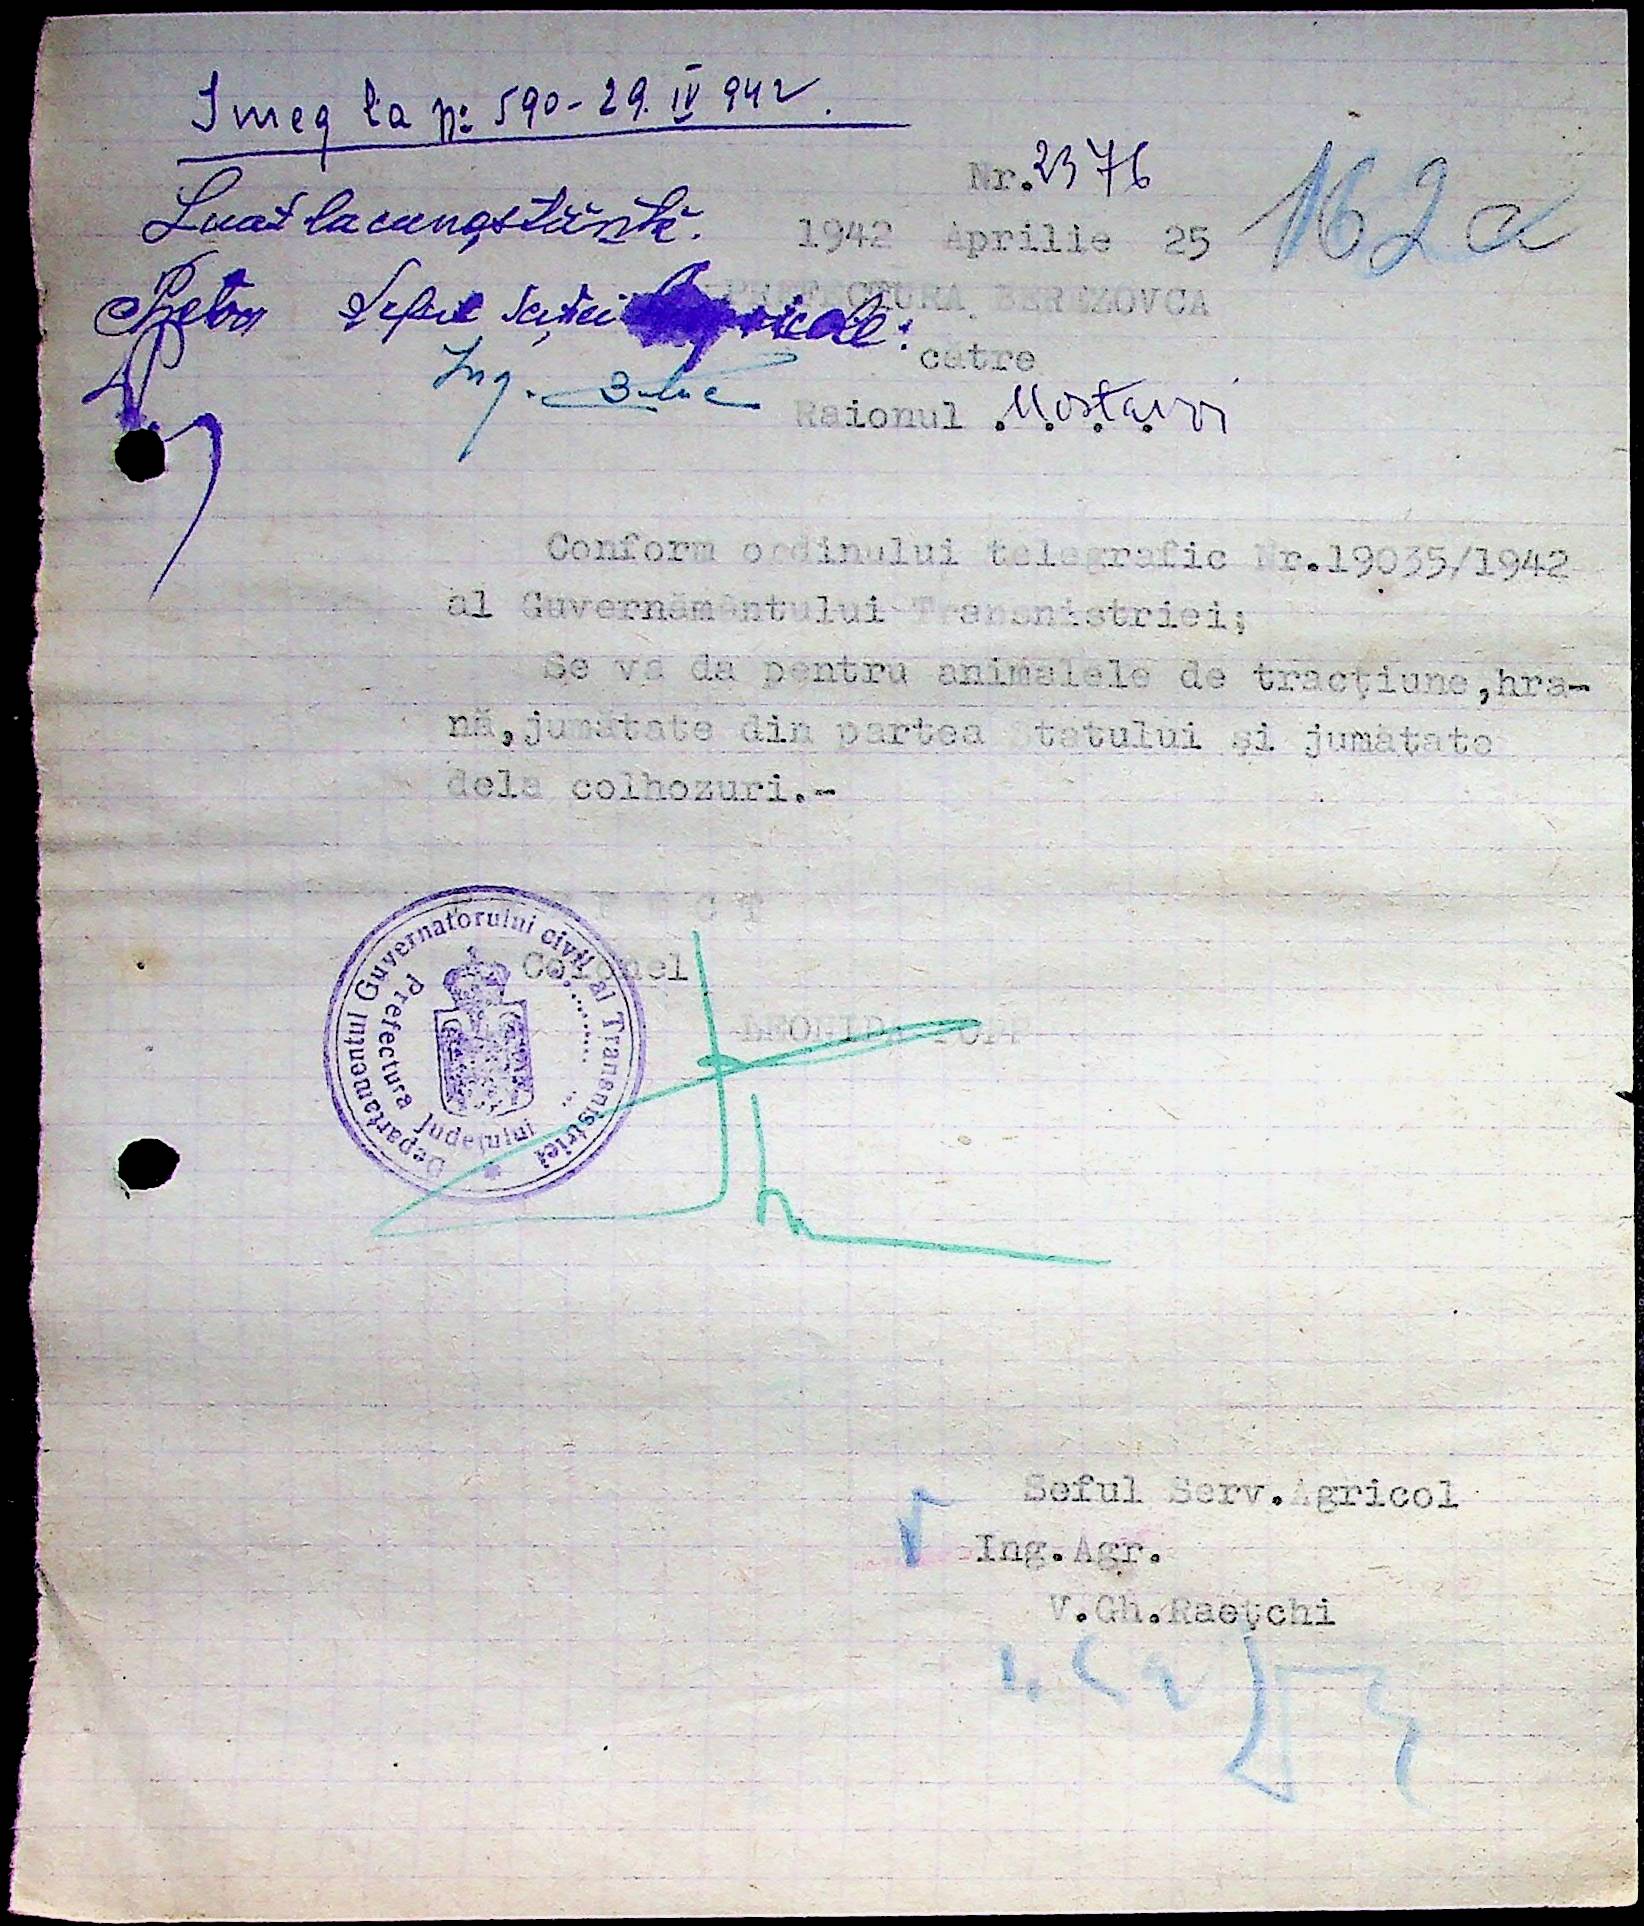 Inreg la nr 590-29.IV 942.
Luat la cunoştinţă.
Pretor Şeful secţiei
Ing.
Nr.2376
162 a
1942 Aprilie 25
PREFECTURA BEREZOVCA
către
Raionul Mostovoi
Conform ordinului telegrafic Nr.19035/1942
al Guvernământului Transnistriei;
Se va da pentru animalele de tracţiune,hra-
nă,jumătate din partea Statului şi jumătate
dela colhozuri.-
F E C T
Colonel
LEONIDA POPP
Departamentul Guvernatorului civil al Transnistriei
Prefectura Judeţului
Seful Serv.Agricol
Ing.Agr.
V.Gh.Raeţchi